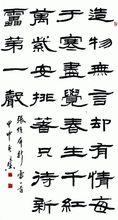 造物無言却有情每
于寒盡覺春生千紅
萬紫安排著只待新
靁第一聲
張維屏新雷
甲申